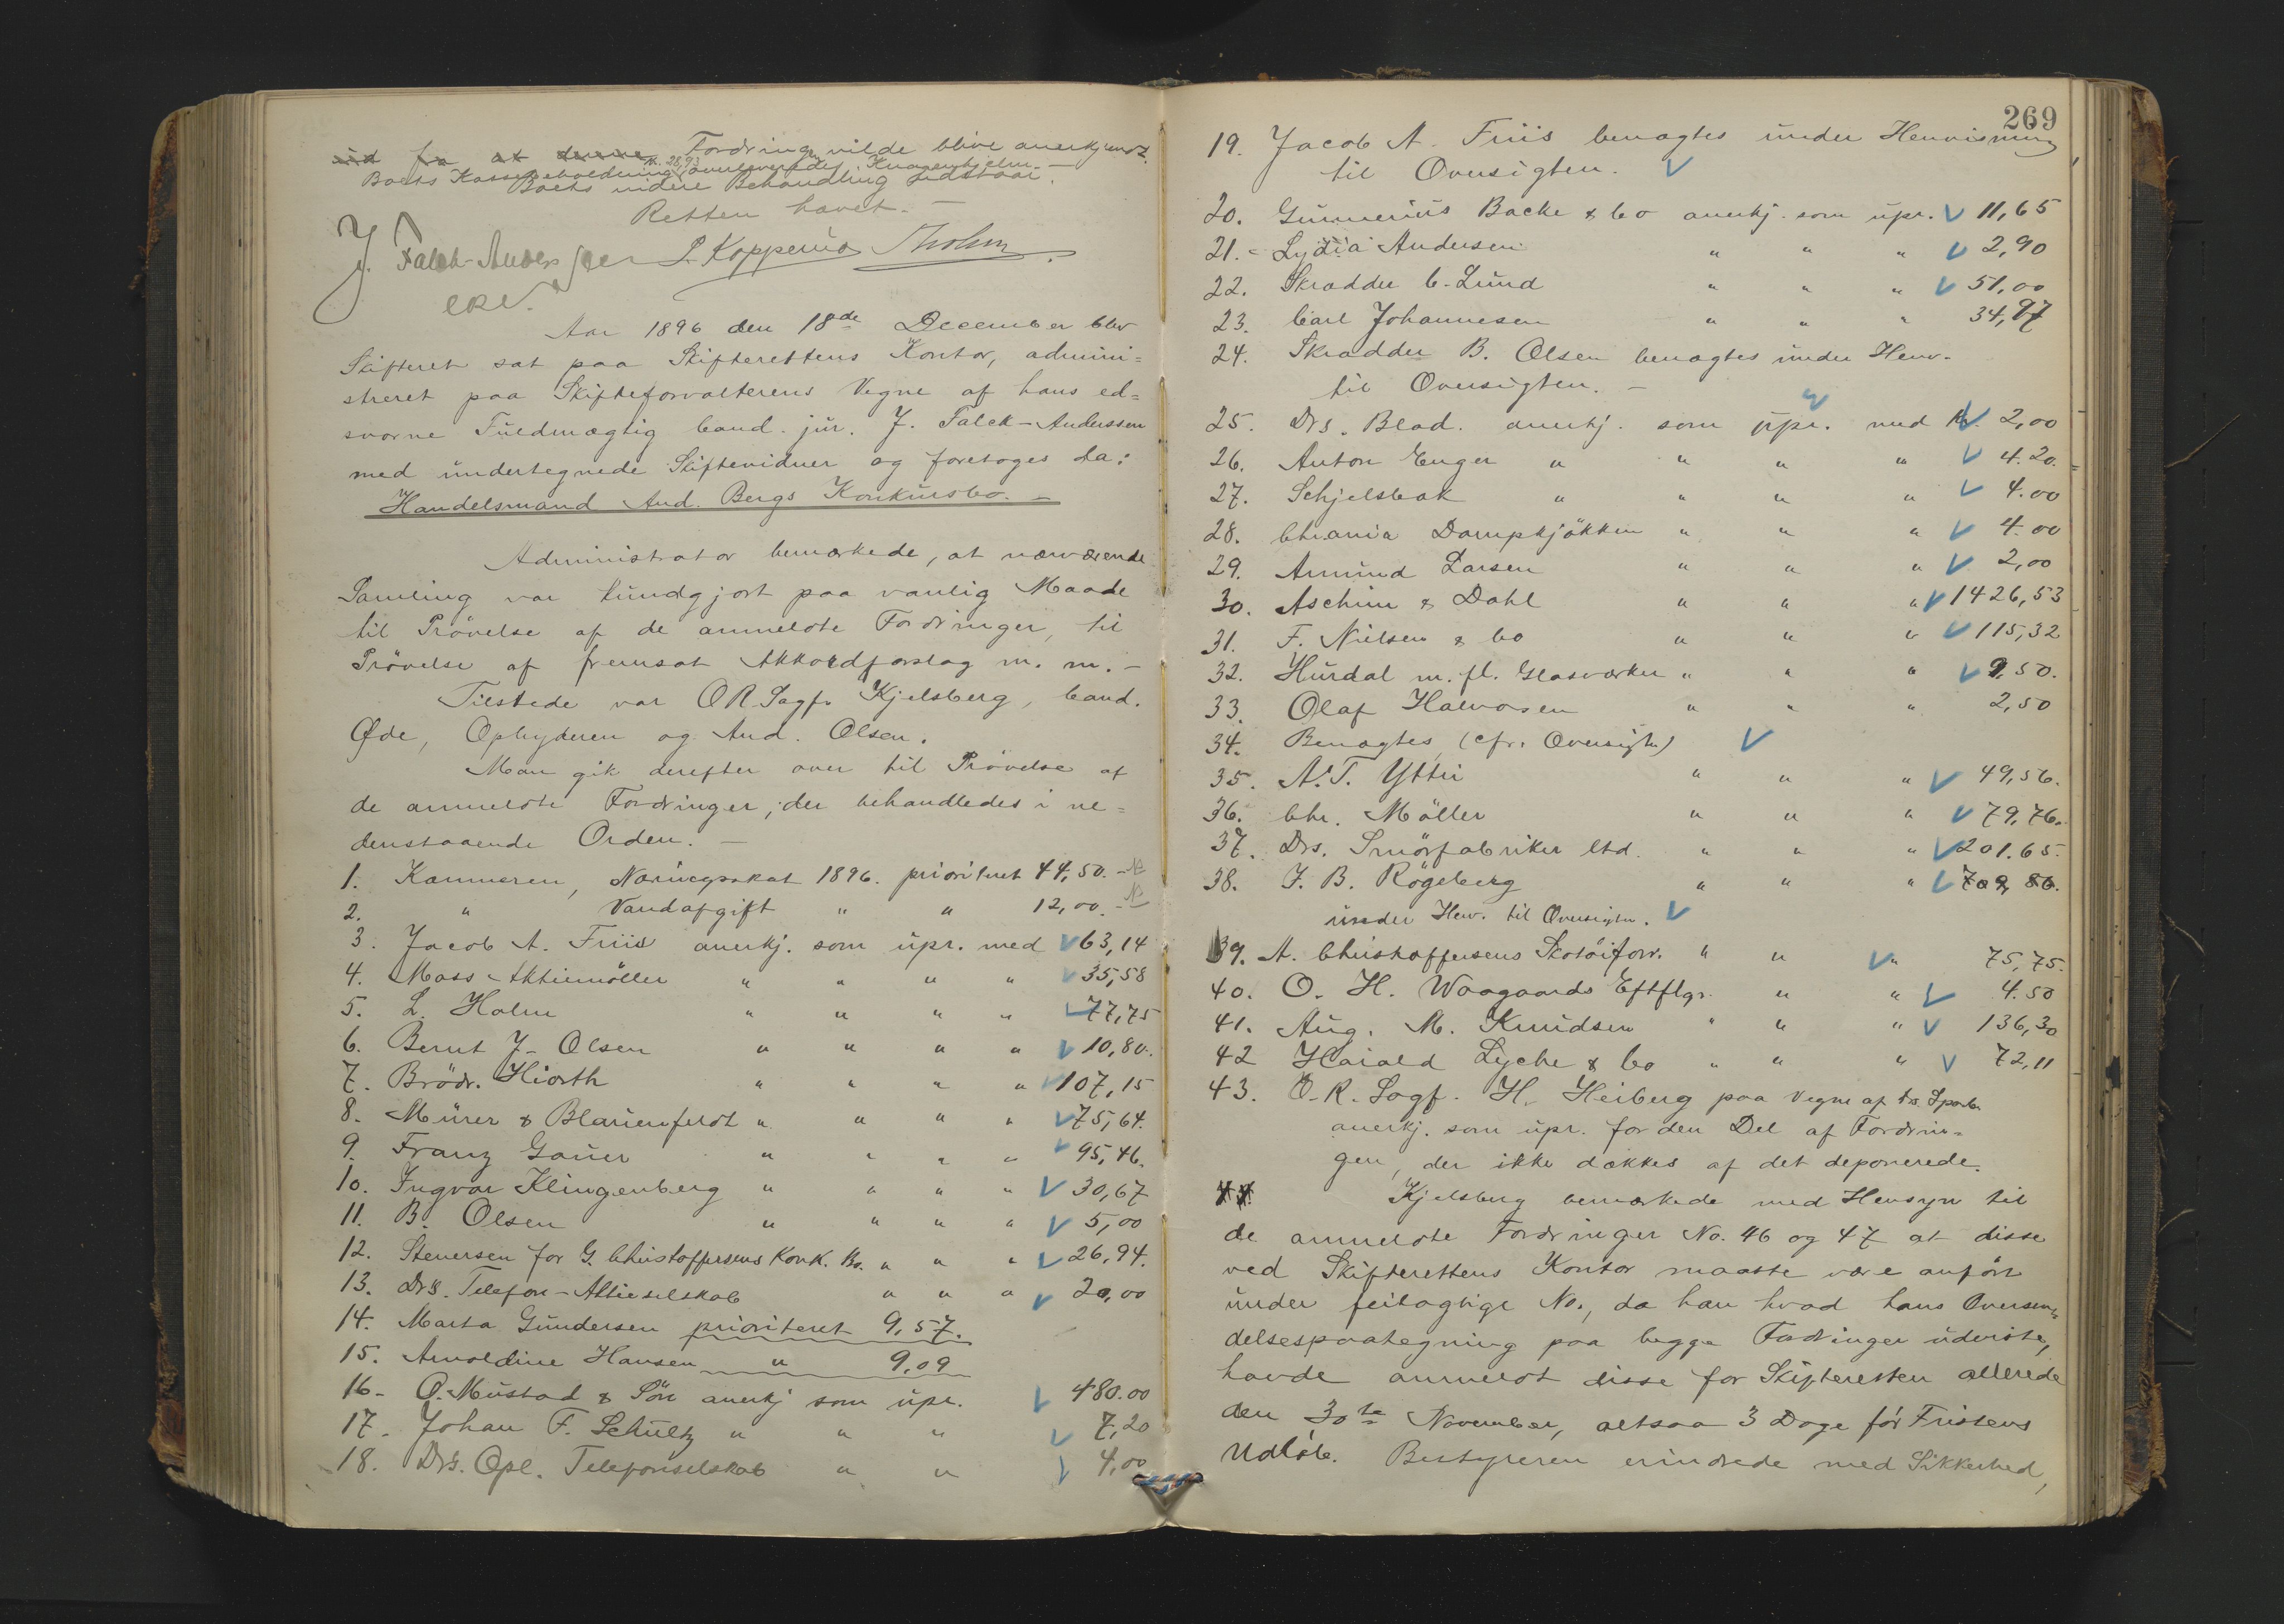 ud fra at denne Fordringen vilde blive anerkjendt.
Boets Kassebeholdning Kr. 28,93 annleveredes Knagenhjelm. —
Boets videre Behandling udstaar.
Retten hævet. —
J. Falck-Anderssen L. Kopperud Tholm
Aar 1896 den 18de December blev
Skifteret sat paa Skifterettens Kontor, admini=
streret paa Skifteforvalterens Vegne af hans ed=
svorne Fuldmægtig Cand. jur. J. Falck-Anderssen
med undertegnede Skiftevidner og foretoges da:
Handelsmand And. Bergs Konkursbo. —
Administrator bemærkede, at nærværende
Samling var kundgjort paa vanlig Maade
til Prövelse af de anmeldte Fordringer, til
Prövelse af fremsat Akkordforslag m. m. —
Tilstede var O.R. Sagf. Kjelsberg, Cand.
Øde, Opbyderen og And. Olsen.
Man gik derefter over til Prövelse af
de anmeldte Fordringer, der behandledes i ne=
denstaaende Orden. —
1. Kæmneren, Næringsskat 1896. prioriteret 44,50. —
2. " Vandafgift " " 12,00. —
3. Jacob A. Friis anerkj. som upr. med 63,14
4. Moss-Aktiemöller " " " " 35,58
5. L. Holm " " " " 77,75
6. Bernt J. Olsen " " " " 10,80.
7. Brödr. Hiorth " " " " 107,15
8. Mürer & Blarienfeldt " " " " 75,64.
9. Franz Gauer " " " " 95,46.
10. Ingvar Klingenberg " " " " 30,67
11. B. Olsen " " " " 5,00
12. Stenersen for G. Christoffersens Konk. Bo. " " " 26,94.
13. Drs. Telefon-Aktieselskab " " " 20,00
14. Marta Gundersen prioriteret 9,57.
15. Arnoldine Hansen " 9,09
16. O. Mustad & Sön anerkj som upr. 480.00
17. Johan F. Schultz " " " 7,20
18. Drs. Opl. Telefonselskab " " 4,00
269
19. Jacob A. Friis benægtes under Henvisning
til Oversigten.
20. Gunnerius Backe & Co anerkj. som upr. 11,65
21. Lydia Andersen " " " 2,90
22. Skrædder C. Lund " " " 51,00
23. Carl Johannesen " " " 34,97
24. Skrædder B. Olsen benægtes under Henv.
til Oversigten. —
25. Drs. Blad. anerkj. som upr. med Kr. 2,00
26. Anton Enger " " " " 4.20.
27. Schjelsbak " " " " 4.00
28. Chrania Dampkjökken " " " 4.00
29. Amund Larsen " " " 2,00
30. Aschim & Dahl " " " 1426,53
31. F. Nielsen & Co " " " 115,32
32. Hurdal m. fl. Glasværker " " " 9,50.
33. Olaf Halvorsen " " " 2,50
34. Benægtes (cfr. Oversigten)
35. A. T. Ytter " " " 49,56.
36. Chr. Möller " " " 79,76.
37. Drs. Smörfabriker ltd. " " " 201.65.
38. J. B. Rögeberg " " " 709, 86.
under Henv. til Oversigten.
39. A. Christoffersens Skotöiforr. " " " 75,75.
40. O. H. Waagaards Eftflgr. " " 4.50
41. Aug. M. Knudsen " " " 136,30
42 Harald Lyche & Co " " " 72,11
43. O.R. Sagf. H. Heiberg paa Vegne af Drs. Spareb.
anerkj. som upr. for den Del af Fordrin=
gen, der ikke dækkes af det deponerede.
44. Kjelsberg bemærkede med Hensyn til
de anmeldte Fordringer No. 46 og 47 at disse
ved Skifterettens Kontor maatte være anfört
under feilagtige No., da han hvad hans Oversen=
delsespaategning paa begge Fordringer udviste,
havde anmeldt disse for Skifteretten allerede
den 30te November, altsaa 3 Dage för Fristens
Udlöb. Bestyreren erindrede med Sikkerhed,